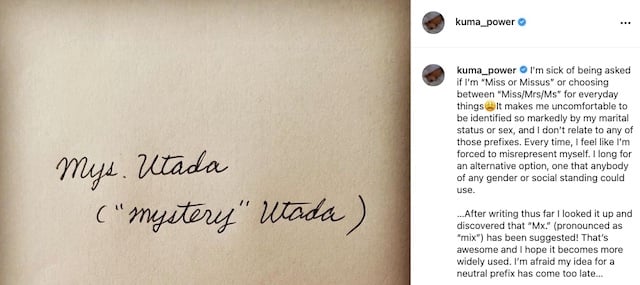 Mys. Utada
("mystery" Utada)
kuma_power
kuma_power I'm sick of being asked
if I'm "Miss or Missus" or choosing
between "Miss/Mrs/Ms" for everyday
things😩It makes me uncomfortable to
be identified so markedly by my marital
status or sex, and I don't relate to any of
those prefixes. Every time, I feel like I'm
forced to misrepresent myself. I long for
an alternative option, one that anybody
of any gender or social standing could
use.
...After writing thus far I looked it up and
discovered that "Mx." (pronounced as
"mix") has been suggested! That's
awesome and I hope it becomes more
widely used. I'm afraid my idea for a
neutral prefix has come too late...